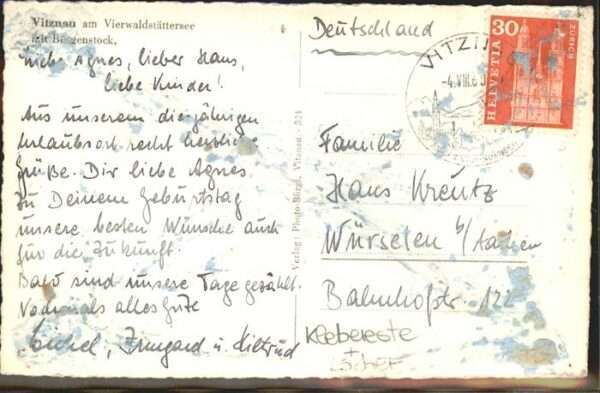 Vitznau am Vierwaldstättersee
mit Bürgenstock,
Liebe Agnes, lieber Hans,
liebe Kinder!
Aus unserem diesjährigen
Urlaubsort recht herzliche
Grüße. Dir liebe Agnes
zu Deinem Geburtstag
unsere besten Wünsche auch
für die Zukunft.
Bald sind unsere Tage gezählt.
Nochmals alles Gute
Irmgard u. Hiltrud
Verlag: Photo Bürgi, Vitznau - 824
Deutschland
VITZN
-4.VIII.6
30
HELVETIA
ZÜRICH
Familie
Hans Kreutz
Würselen b/Aachen
Bahnhofstr 122
Klebereste